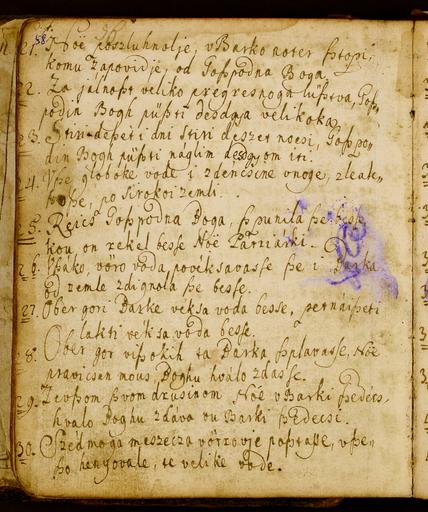 21. Noë poszluhnolje, v Barko noter sztopi,
komu Zapovidje, od Goszpodna Boga.
22. Za jálnoszt veliko pregresnoga lüsztva, Gosz-
podin Bogh püszti desdgja velikoka.
23. Stiri-deszéti dni stiri deszet nocsi, Goszpo-
din Bogh püszti náglim desdgyom iti.
24. Vsze globoke vode i zdencsine vnoge, zleate-
po sirokoi zemli.
25. Réics Goszpodna Boga, szpunila sze besse
kou on rekel besse Noë Patriarki.
26. vöro voda, povéksavasse sze i Barka
od zemle zdignola sze besse.
27. Ober gori Barke véksa voda besse, petnáiszeti
lakti véksa voda besse.
28. Ober gor viszokih ta Barka szplavasse, Noë
pravicsen mous Boghu hválo zdasse.
29. Z evsom szvom drusinom Noë v Barki szedécs,
hvalo Boghu zdáva vu Barki szedécsi.
30. Szedmoga meszecza vöttrovje posztasse, vsze-
szo henyovale, te velike vode.